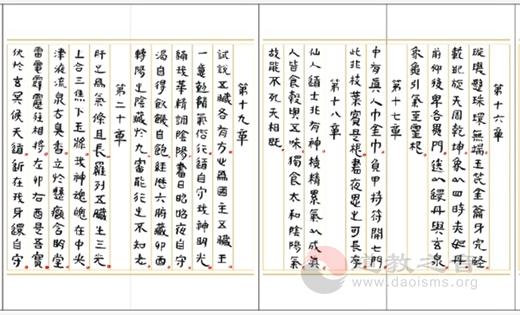 第十六章
璇璣懸珠環無端玉苽金籥身完堅
載地旋天周乾坤象以四時赤如丹
前仰後卑各異門送以還丹與玄泉
象龜引氣至靈根
第十七章
中有真人巾金巾負甲持符開七門
此非枝葉實是根晝夜思之可長存
第十八章
仙人道士非有神積精累氣以成真
人皆食穀與五味獨食太和陰陽氣
故能不死天相既
第十九章
試說五藏各有方心為國主五藏王
意動靜氣得行道自守我神明光
華精調陰陽晝日昭昭夜自守
渴自得飲飢自飽經歷六府藏卯酉
轉陽之陰藏於九常能行之不知老
第二十章
肝之為氣修且長羅列五藏主三光
上合三焦下玉漿我神魂魄在中央
津液流泉去臭香立於懸癰含明堂
雷電霹靂往相將左卯右酉是吾寶
伏於玄冥候天道近在我身還自守
道教之音
www.daoisms.org